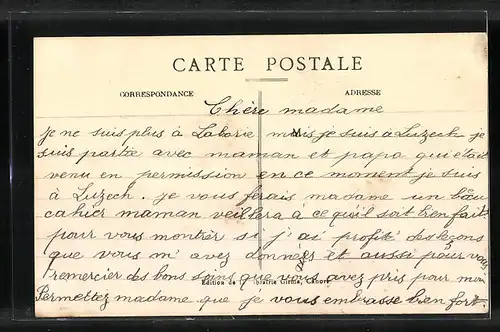 CARTE POSTALE
CORRESPONDANCE
ADRESSE
Chère madame
je ne suis plus à Laborie mais je suis à Luzech je
suis partie avec maman et papa qui était
venu en permission en ce moment je suis
à Luzech. je vous ferais madame un bau
cahier maman veillera à ce qu'il soit bien fait
pour vous montrer si j'ai profité des leçons
que vous m'avez données et aussi pour vous
remercier des bons soins que vous avez pris pour moi
Edition de la librairie Girma, Cahors
Permettez madame que je vous embrasse bien fort.